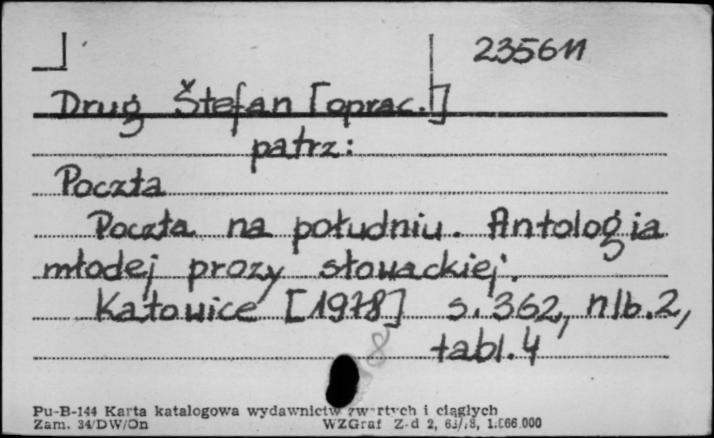 235611
Drug Štefan [oprac.]
patrz:
Poczta
Poczta na południu. Antologia
młodej prozy słowackiej.
Katowice [1978] s. 362, nlb. 2,
tabl. 4
8
Pu-B-144 Karta katalogowa wydawnictw zwartych i ciągłych
Zam. 34/DW/On WZGraf Z-d 2, 1.666.000